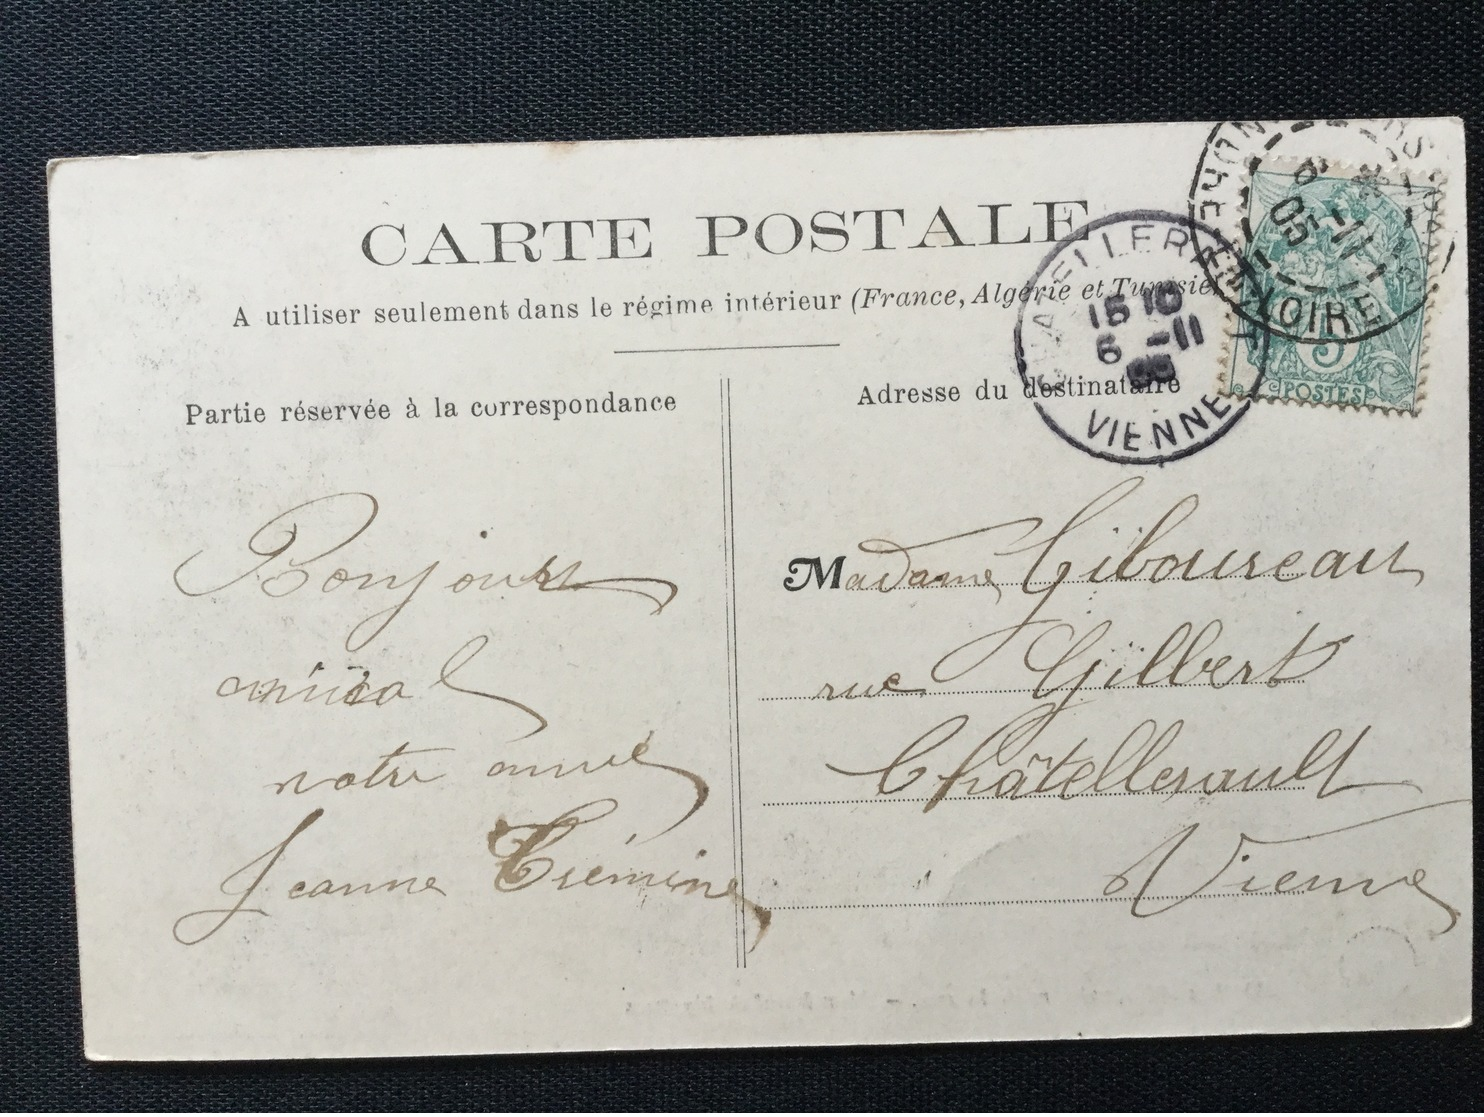 CARTE POSTALE
A utiliser seulement dans le régime intérieur (France, Algérie et Tunisie)
Partie réservée à la correspondance
Adresse du destinataire
CHATELLERAULT
15 10
6 -11
05
VIENNE
6
-11
05
LOIRE
5
POSTES
Bonjour
amical
votre amie
Jeanne Trémine
Madame Giboureau
rue Gilbert
Châtellerault
Vienne